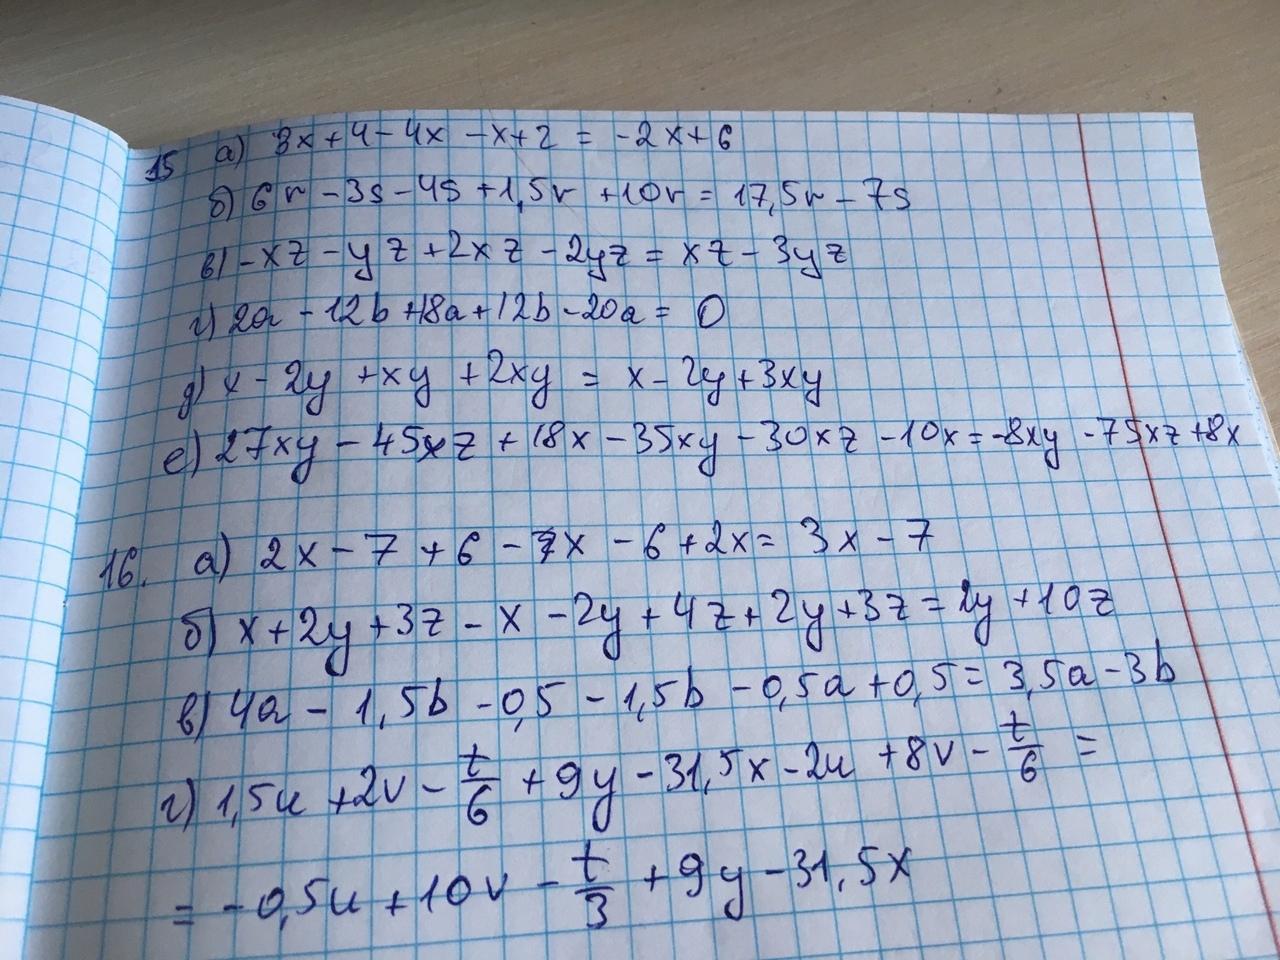 15 а) 3x + 4 - 4x - x + 2 = -2x + 6
б) 6r - 3s - 4s + 1,5r + 10r = 17,5r - 7s
в) -xz - yz + 2xz - 2yz = xz - 3yz
г) 2a - 12b + 18a + 12b - 20a = 0
д) x - 2y + xy + 2xy = x - 2y + 3xy
е) 27xy - 45xz + 18x - 35xy - 30xz - 10x = -8xy - 75xz + 8x
16. а) 2x - 7 + 6 - x - 6 + 2x = 3x - 7
б) x + 2y + 3z - x - 2y + 4z + 2y + 3z = 2y + 10z
в) 4a - 1,5b - 0,5 - 1,5b - 0,5a + 0,5 = 3,5a - 3b
г) 1,5u + 2v - t/6 + 9y - 31,5x - 2u + 8v - t/6 =
= -0,5u + 10v - t/3 + 9y - 31,5x